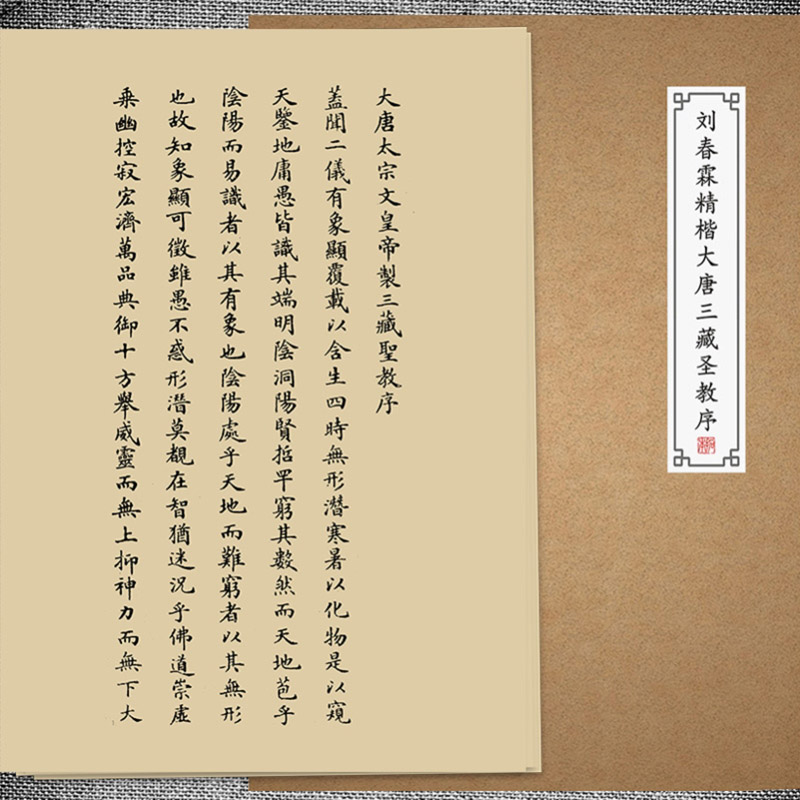 刘春霖精楷大唐三藏圣教序
大唐太宗文皇帝製三藏聖教序
蓋聞二儀有象顯覆載以含生四時無形潛寒暑以化物是以窺
天鑒地庸愚皆識其端明陰洞陽賢哲罕窮其數然而天地苞乎
陰陽而易識者以其有象也陰陽處乎天地而難窮者以其無形
也故知象顯可徵雖愚不惑形潛莫覩在智猶迷況乎佛道崇虛
乘幽控寂宏濟萬品典御十方舉威靈而無上抑神力而無下大